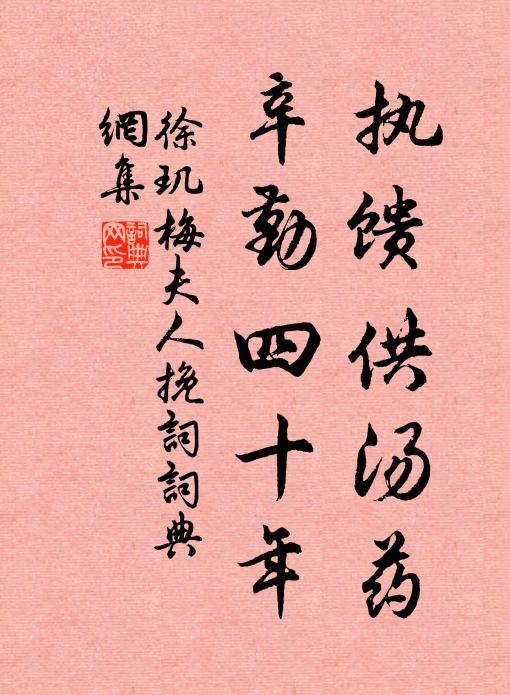 执馈供汤药
辛勤四十年
徐玑梅夫人挽詞詞典
網集
詞典网印